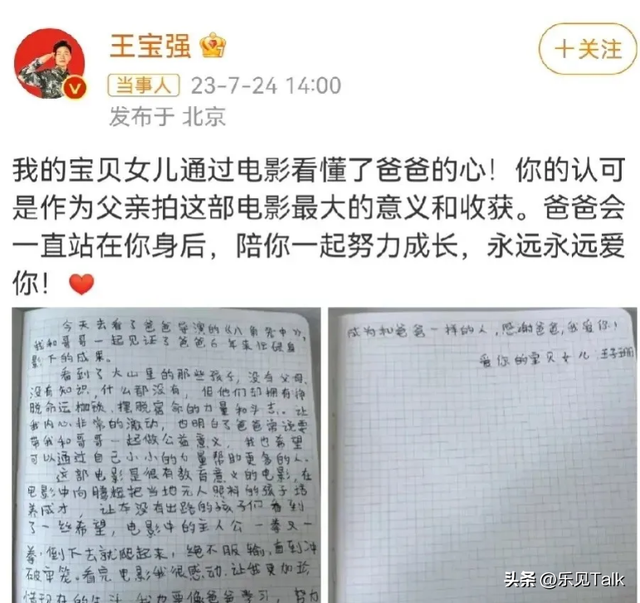 王宝强
+关注
当事人 23-7-24 14:00
发布于 北京
我的宝贝女儿通过电影看懂了爸爸的心！你的认可
是作为父亲拍这部电影最大的意义和收获。爸爸会
一直站在你身后，陪你一起努力成长，永远永远爱
你！
今天去看了爸爸导演的《八角笼中》，
我和哥哥一起见证了爸爸6年来
影下的成果。
看到了大山里的那些孩子，没有父母，
没有知识，什么都没有，但他们却拥有挣
脱命运枷锁，摆脱宿命的力量和斗志。让
我内心非常的激动，也明白了爸爸常说要
带我和哥哥一起做公益意义，我也希望
可以通过自己小小的力量帮助更多的人。
这部电影是很有教育意义的电影，在
电影中向腾辉把当地无人照料的孩子培
养成才，让本没有出路的孩子们看到
了一丝希望，电影中的主人公一拳又一
拳，倒下去就爬起来，绝不服输，直到冲
破牢笼。看完电影我很感动，让我更加
惜现在的生活，我也要像爸爸学习，努力
成为和爸爸一样的人，感谢爸爸，我爱你，
爱你的宝贝女儿 王子珊
头条 @乐见Talk